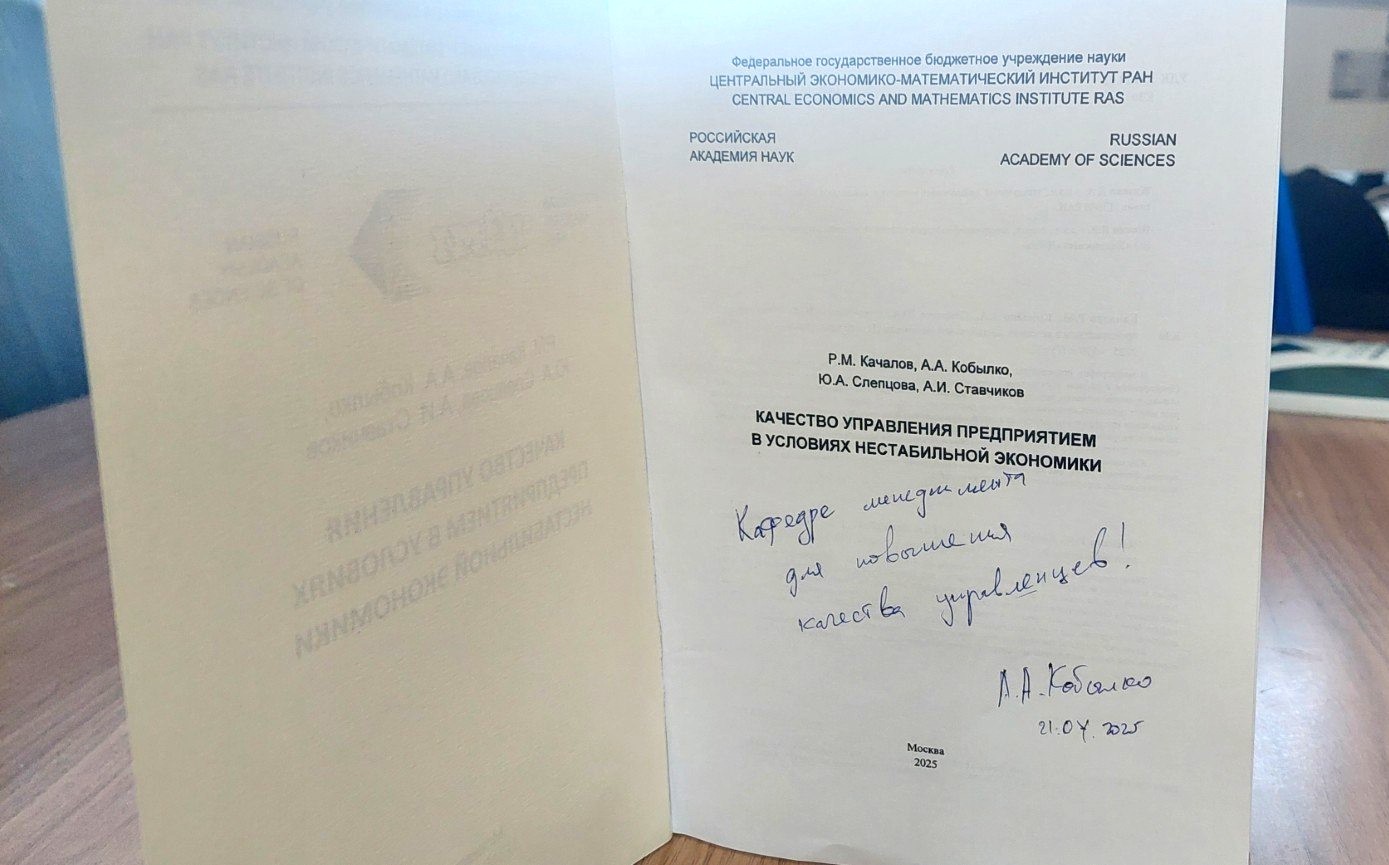 Федеральное государственное бюджетное учреждение науки
ЦЕНТРАЛЬНЫЙ ЭКОНОМИКО-МАТЕМАТИЧЕСКИЙ ИНСТИТУТ РАН
CENTRAL ECONOMICS AND MATHEMATICS INSTITUTE RAS
РОССИЙСКАЯ
АКАДЕМИЯ НАУК
RUSSIAN
ACADEMY OF SCIENCES
Р.М. Качалов, А.А. Кобылко,
Ю.А. Слепцова, А.И. Ставчиков
КАЧЕСТВО УПРАВЛЕНИЯ ПРЕДПРИЯТИЕМ
В УСЛОВИЯХ НЕСТАБИЛЬНОЙ ЭКОНОМИКИ
Кафедре менеджмента
для повышения
качества управленцев!
А.А. Кобылко
21.04.2025
Москва
2025